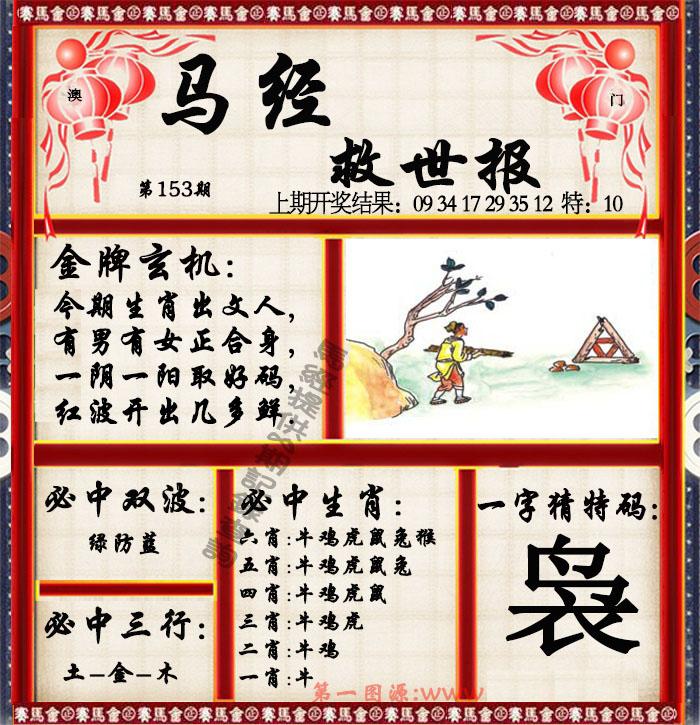 賽馬會正賽馬會正賽馬會正賽馬會正賽馬會正賽馬會
澳
门
马经
救世报
第153期
上期开奖结果：09 34 17 29 35 12 特：10
金牌玄机：
今期生肖出文人，
有男有女正合身，
一阴一阳取好码，
红波开出几多鲜.
必中双波：
绿防蓝
必中三行：
土-金-木
必中生肖：
六肖:牛鸡虎鼠兔猴
五肖:牛鸡虎鼠兔
四肖:牛鸡虎鼠
三肖:牛鸡虎
二肖:牛鸡
一肖:牛
一字猜特码:
袅
第一图源:www